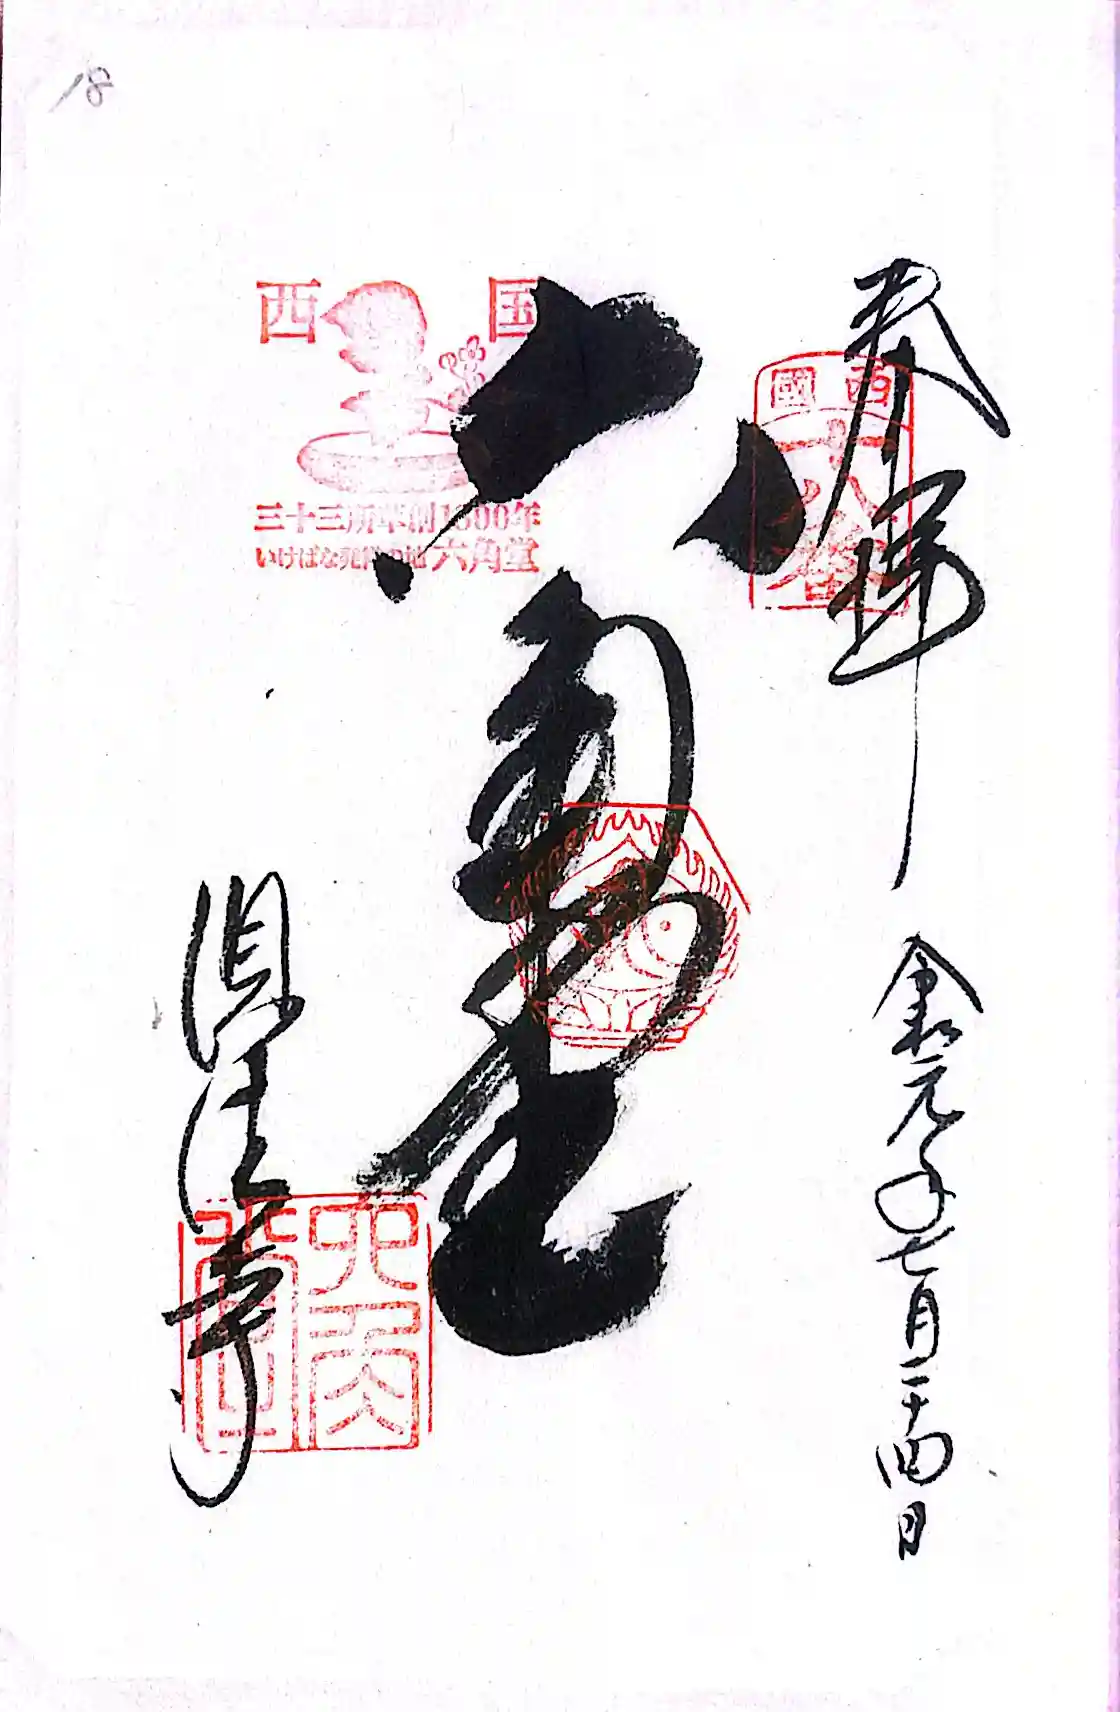 18
奉拝
西國
十八番
令和元年七月二十四日
六角堂
西国
三十三所草創1300年
いけばな発祥の地 六角堂
六角堂
頂法寺